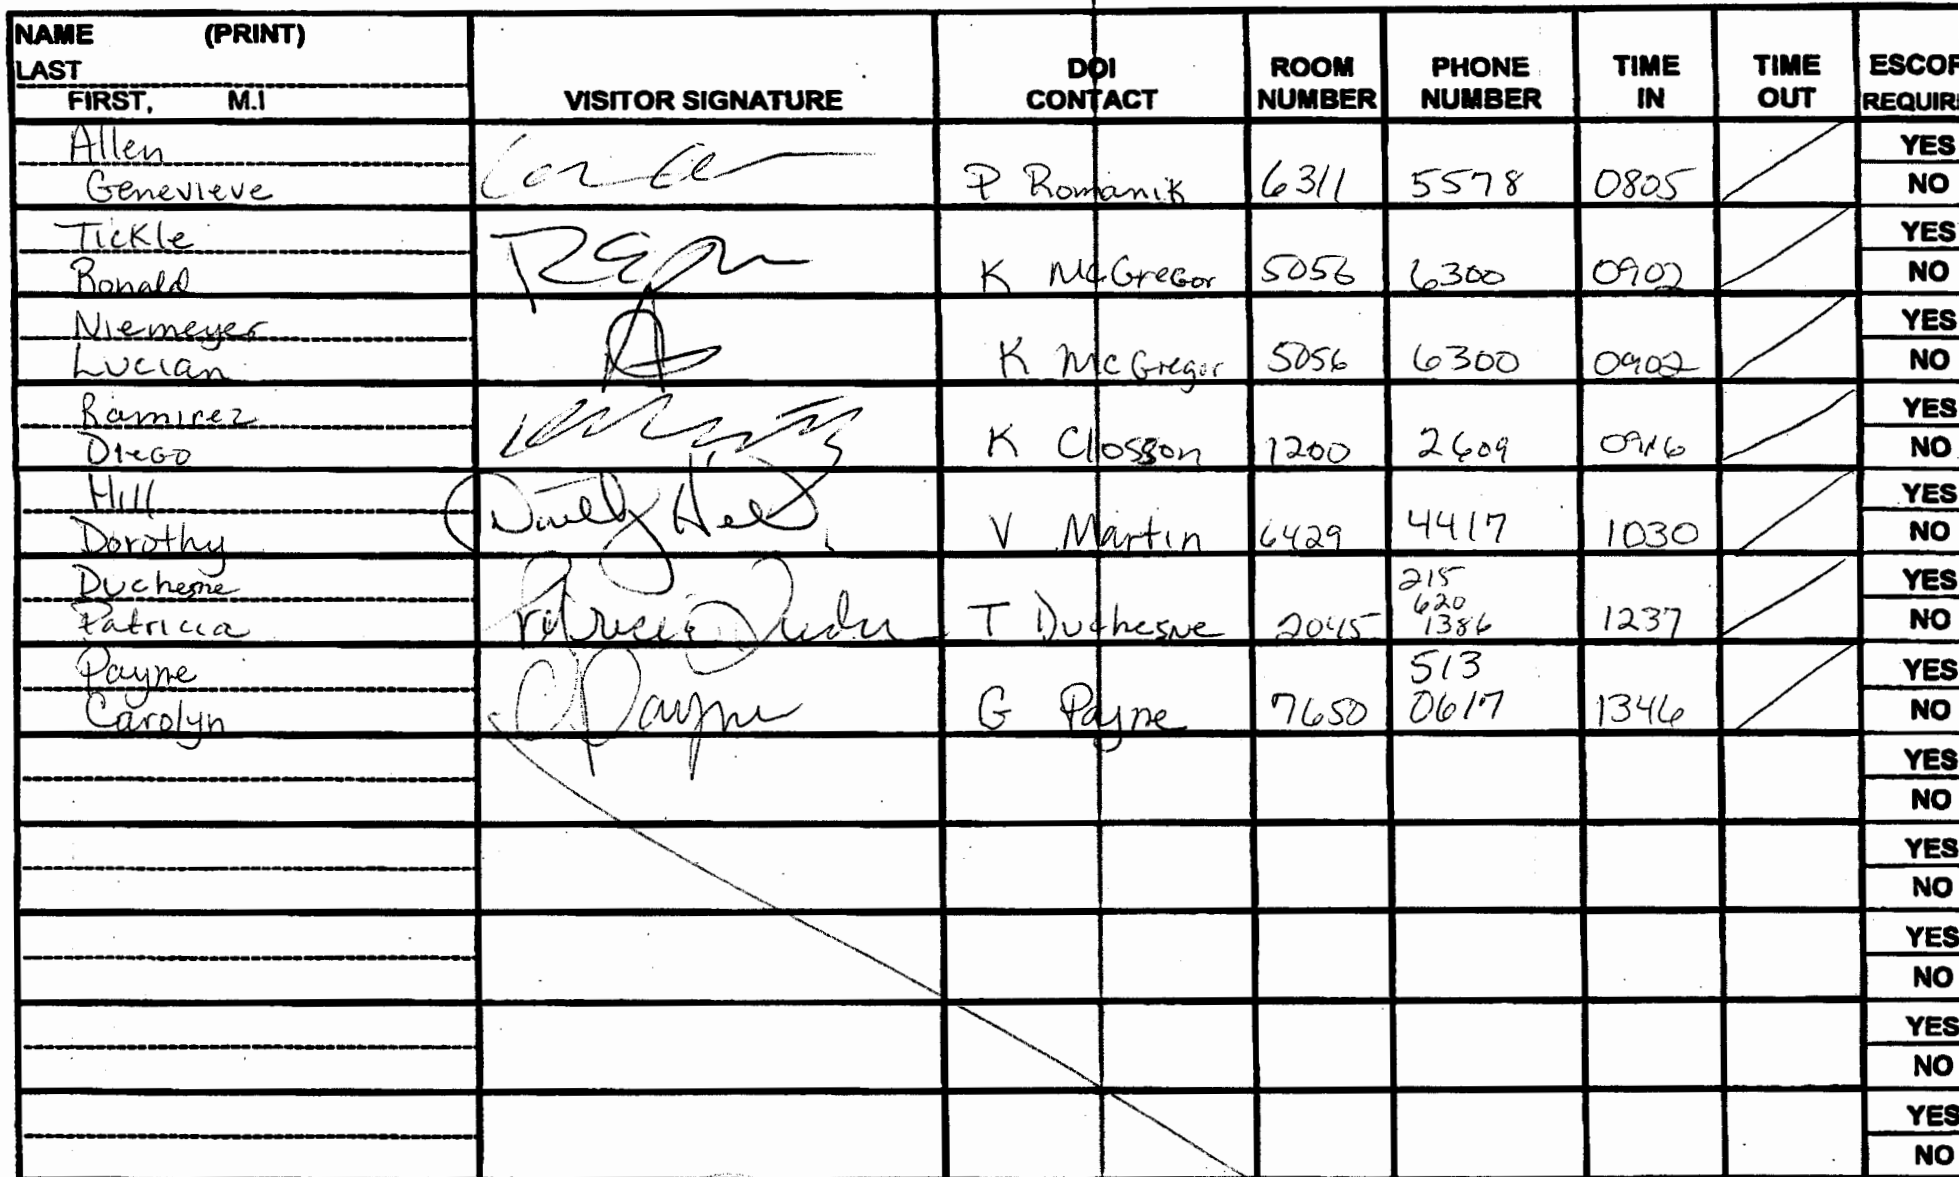 NAME (PRINT)
LAST
FIRST, M.I
VISITOR SIGNATURE
DOI
CONTACT
ROOM
NUMBER
PHONE
NUMBER
TIME
IN
TIME
OUT
ESCOR
REQUIRE
Allen
Genevieve
P Romanik 6311 5578 0805
YES
NO
Tickle
Ronald
K McGregor 5056 6300 0902
YES
NO
Niemeyer
Lucian
K McGregor 5056 6300 0902
YES
NO
Ramirez
Diego
K Closson 1200 2609
YES
NO
Hill
Dorothy
Dorothy Hill
V Martin 6429 4417 1030
YES
NO
Duchesne
Patricia
Patricia
T Duchesne 2045
215
620
1386
1237
YES
NO
Payne
Carolyn
C Payne
G Payne 7650
513
0617
1346
YES
NO
YES
NO
YES
NO
YES
NO
YES
NO
YES
NO